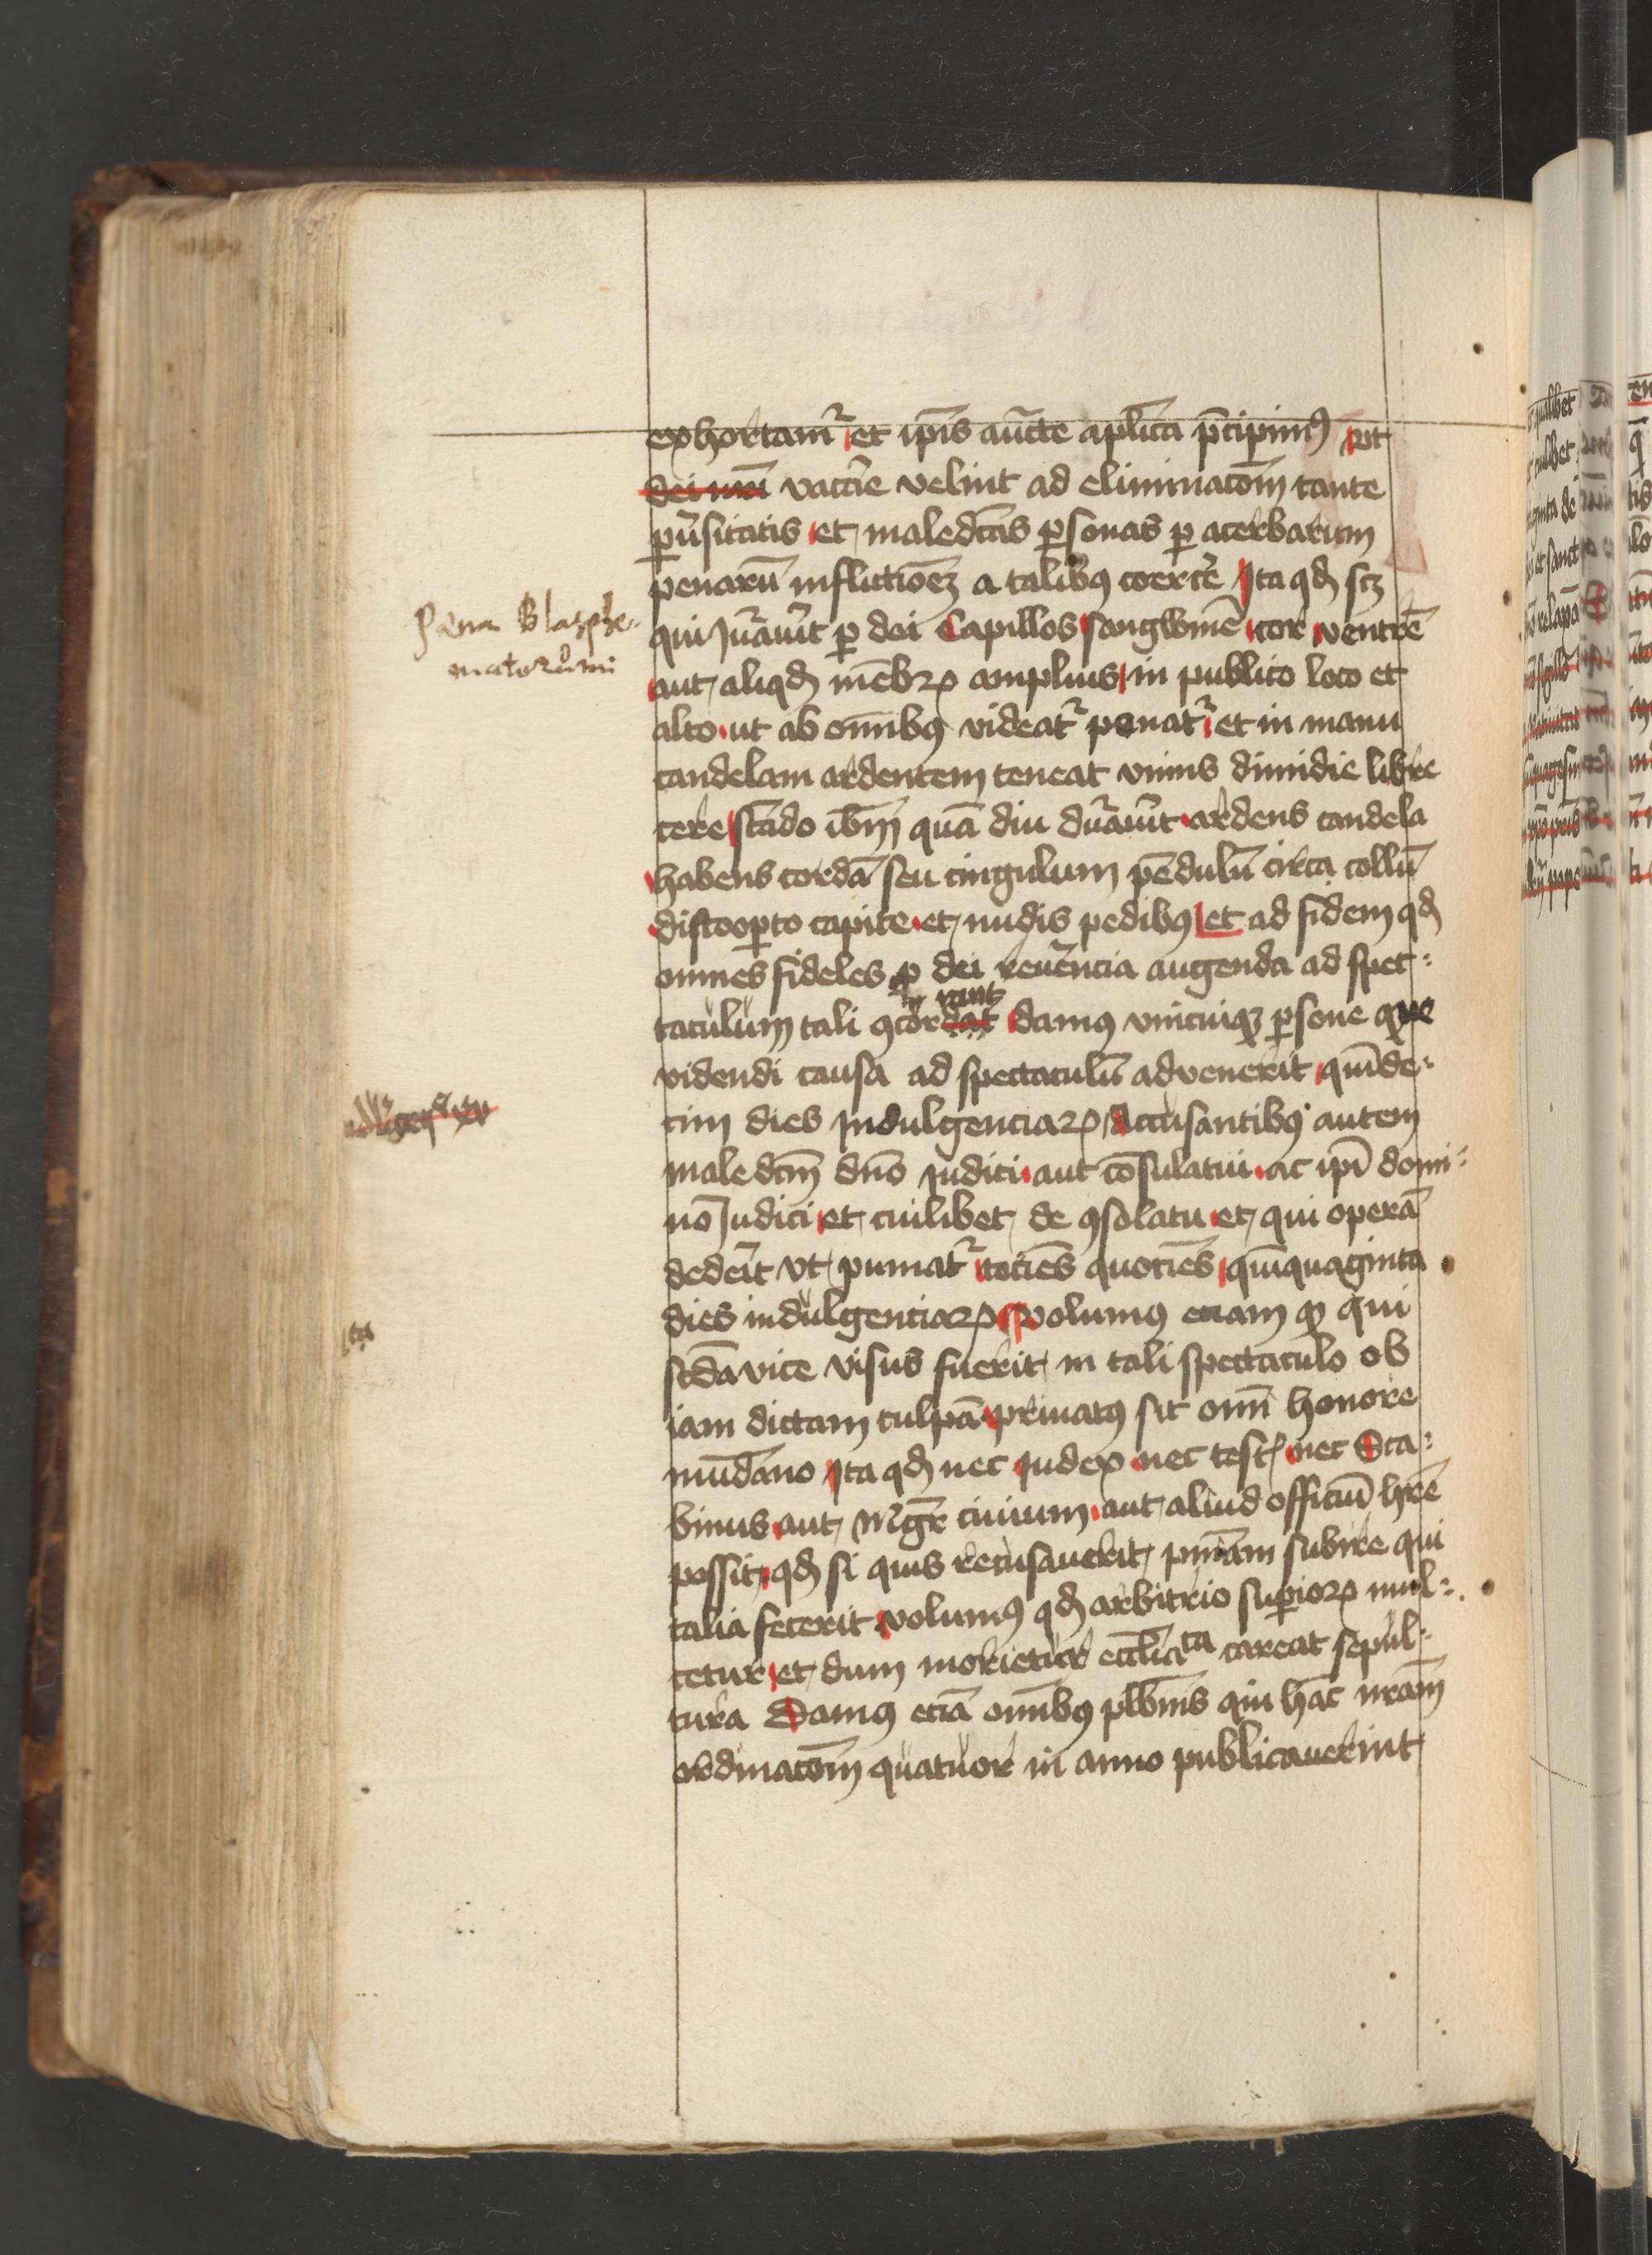 exhortamr et ip̄is auc̄te aplīca p̄cipimꝰ ut
dei vaccīe velint ad eliminacōm tante
ꝑūsitatis et maledc̄as ꝑsonas ꝑ acerbarum
penarū inflictiōeꝫ a talibꝰ coercē Ita qđ scꝫ
Pena Blasphe-
matorum
qui Jūauīt ꝑ dei Capillos sangwinē cor ventrē
aut aliqđ mēbrꝝ amplius in publico loco et
alto ut ab omībꝰ videatr penatr et in manu
candelam ardentem teneat vnius dimidie libre
cere stādo ibm̄ quā diu dūauīt ardens candela
habens cordā seu cingulum pēdulū circa collū
discooꝑto capite et nudis pedibꝰ et ad fidem qđ
omnes fideles ꝓ dei reuēncia augenda ad spec-
taculum tali ꝯcordat damꝰ vnicuiqꝫ ꝑsone que
videndi causa ad spectaculū advenerit quīde-
cim dies Indulgenciarꝝ Accusantibꝰ autem
maledcm̄ dn̄o Judici aut cōsulatui ac ip̄i domi-
nō Judici et cuilibet de ꝯsolatu et qui operā
dedeīt vt puniatr tociēs quociēs quīquaginta
dies indulgenciarꝝ volumꝰ eciam ꝙ qui
scdā vice visus fuerit in tali spectaculo ob
iam dictam culpā priuatꝰ sit omī honore
mūdano Ita qđ nec Judex nec test nec Sca-
binus aut Mgr̄ ciuium aut aliud officiū hr̄e
possit qđ si quis recusauerit pnīam subire qui
talia fecerit volumꝰ qđ arbitrio suꝑiorꝝ mul-
cetur et dum morietur eccl̄ia ca careat sepul-
tura Damꝰ eciā omībꝰ plb̄nis qui hāc nr̄am
ordinacōm quatuor in anno publicauerint